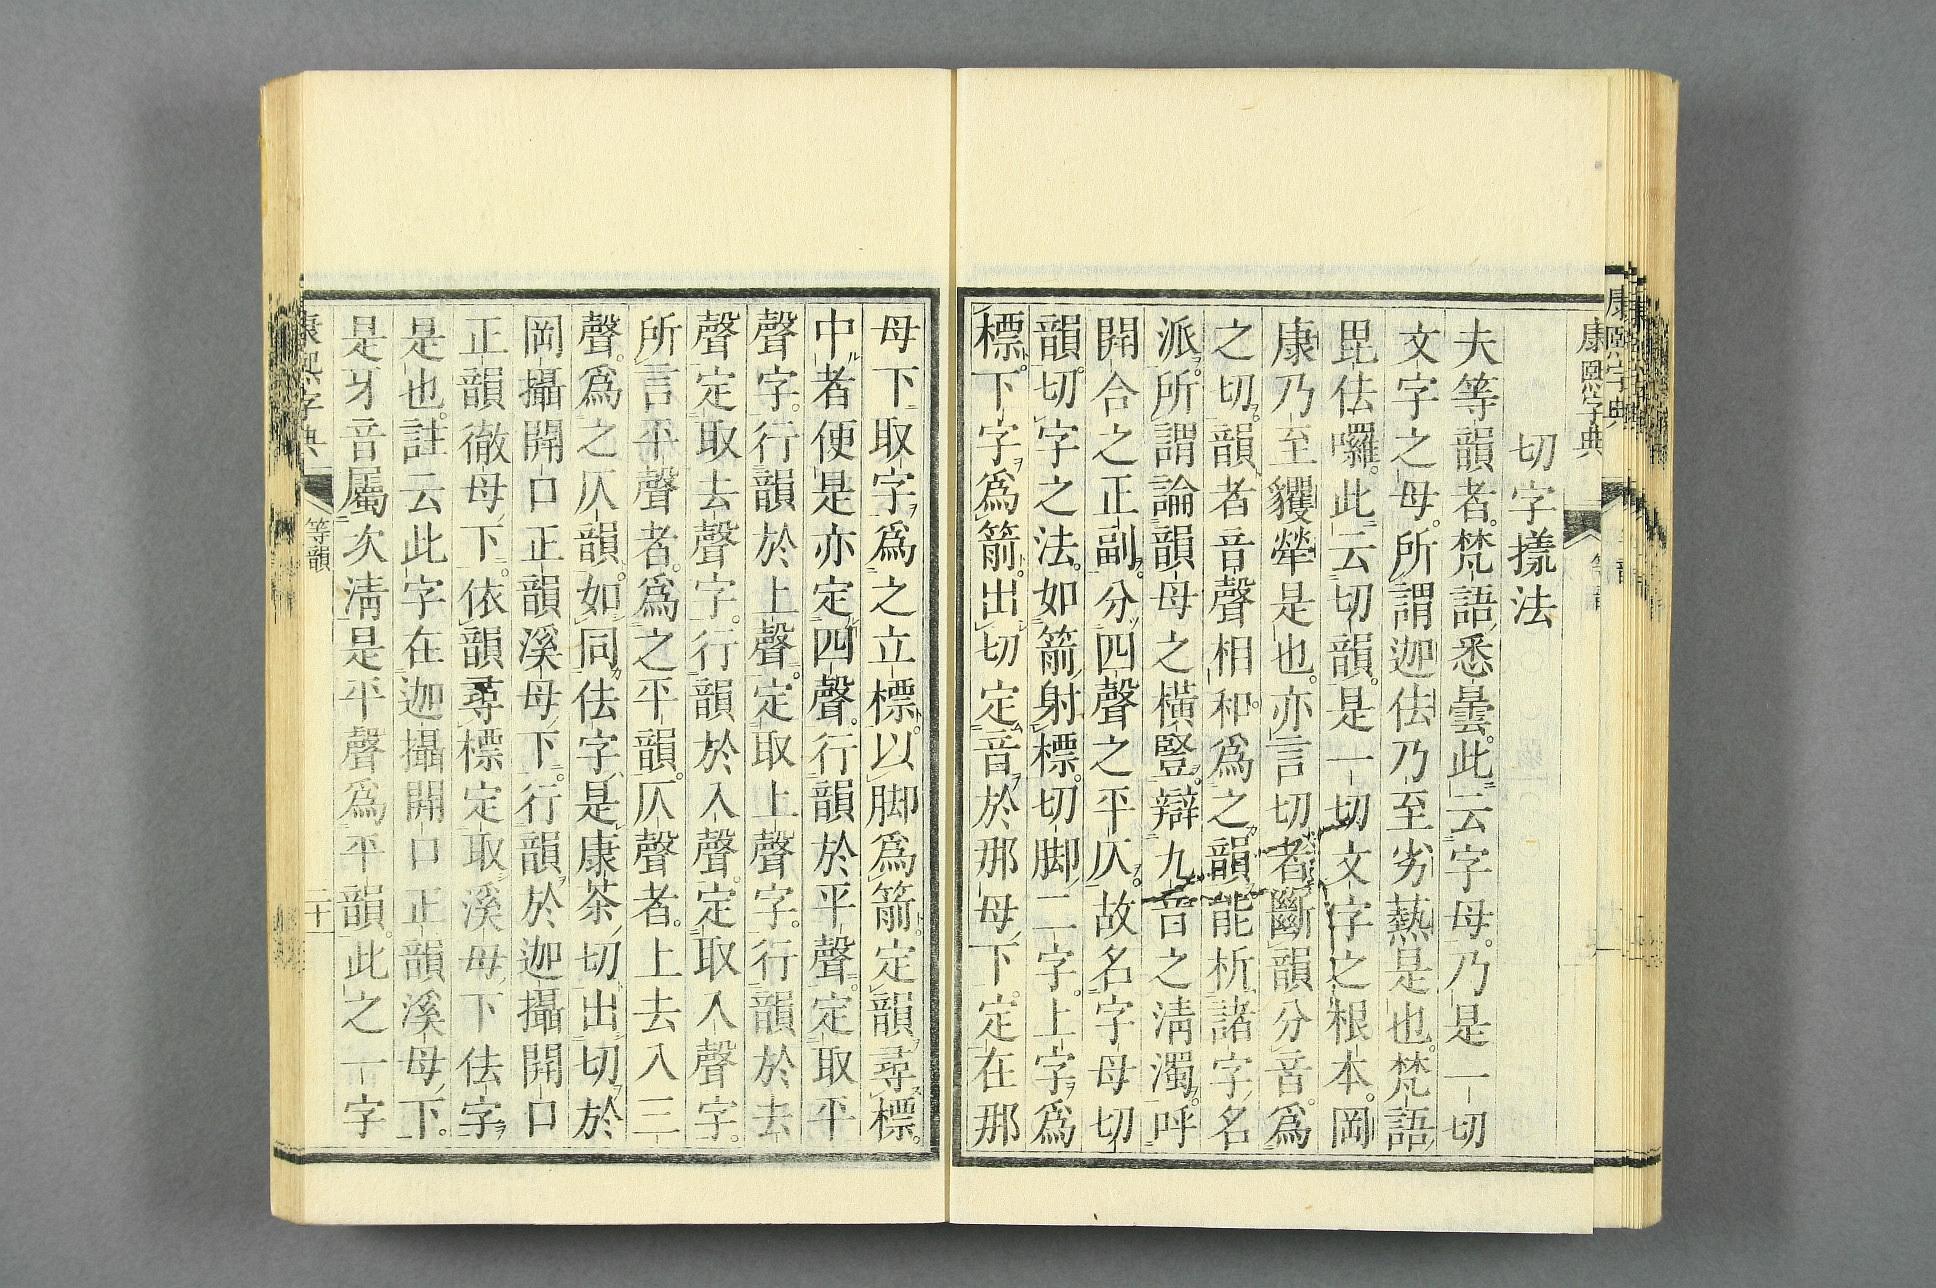 康熙字典
康熙字典
切字㨾法
夫等韻者。梵語悉曇。此云字母。乃是一切
文字之母。所謂迦佉乃至劣熱是也。梵語
毘佉囉。此云切韻。是一切文字之根本。岡
康乃至犟是也。亦言切者斷韻分音。爲
之切。韻者音聲相和。爲之韻能析諸字名
派。所謂論韻母之橫豎。辯九音之淸濁。呼
開合之正副。分四聲之平仄。故名字母切
韻。切字之法。如箭射標。切脚二字。上字爲
標。下字爲箭。出切定音於那母下。定在那
母下取字爲之立標。以脚爲箭定韻尋標。
中者便是亦定四聲。行韻於平聲。定取平
聲字。行韻於上聲。定取上聲字。行韻於去
聲定取去聲字。行韻於入聲。定取入聲字。
所言平聲者。爲之平韻。仄聲者。上去入三
聲。爲之仄韻。如同佉字是康茶切出切於
岡攝開口正韻溪母下。行韻於迦攝開口
正韻徹母下。依韻尋標定取溪母下佉字
是也。註云此字在迦攝開口正韻溪母下。
是牙音屬次淸是平聲爲平韻。此之一字
康熙字典
等韻
二十